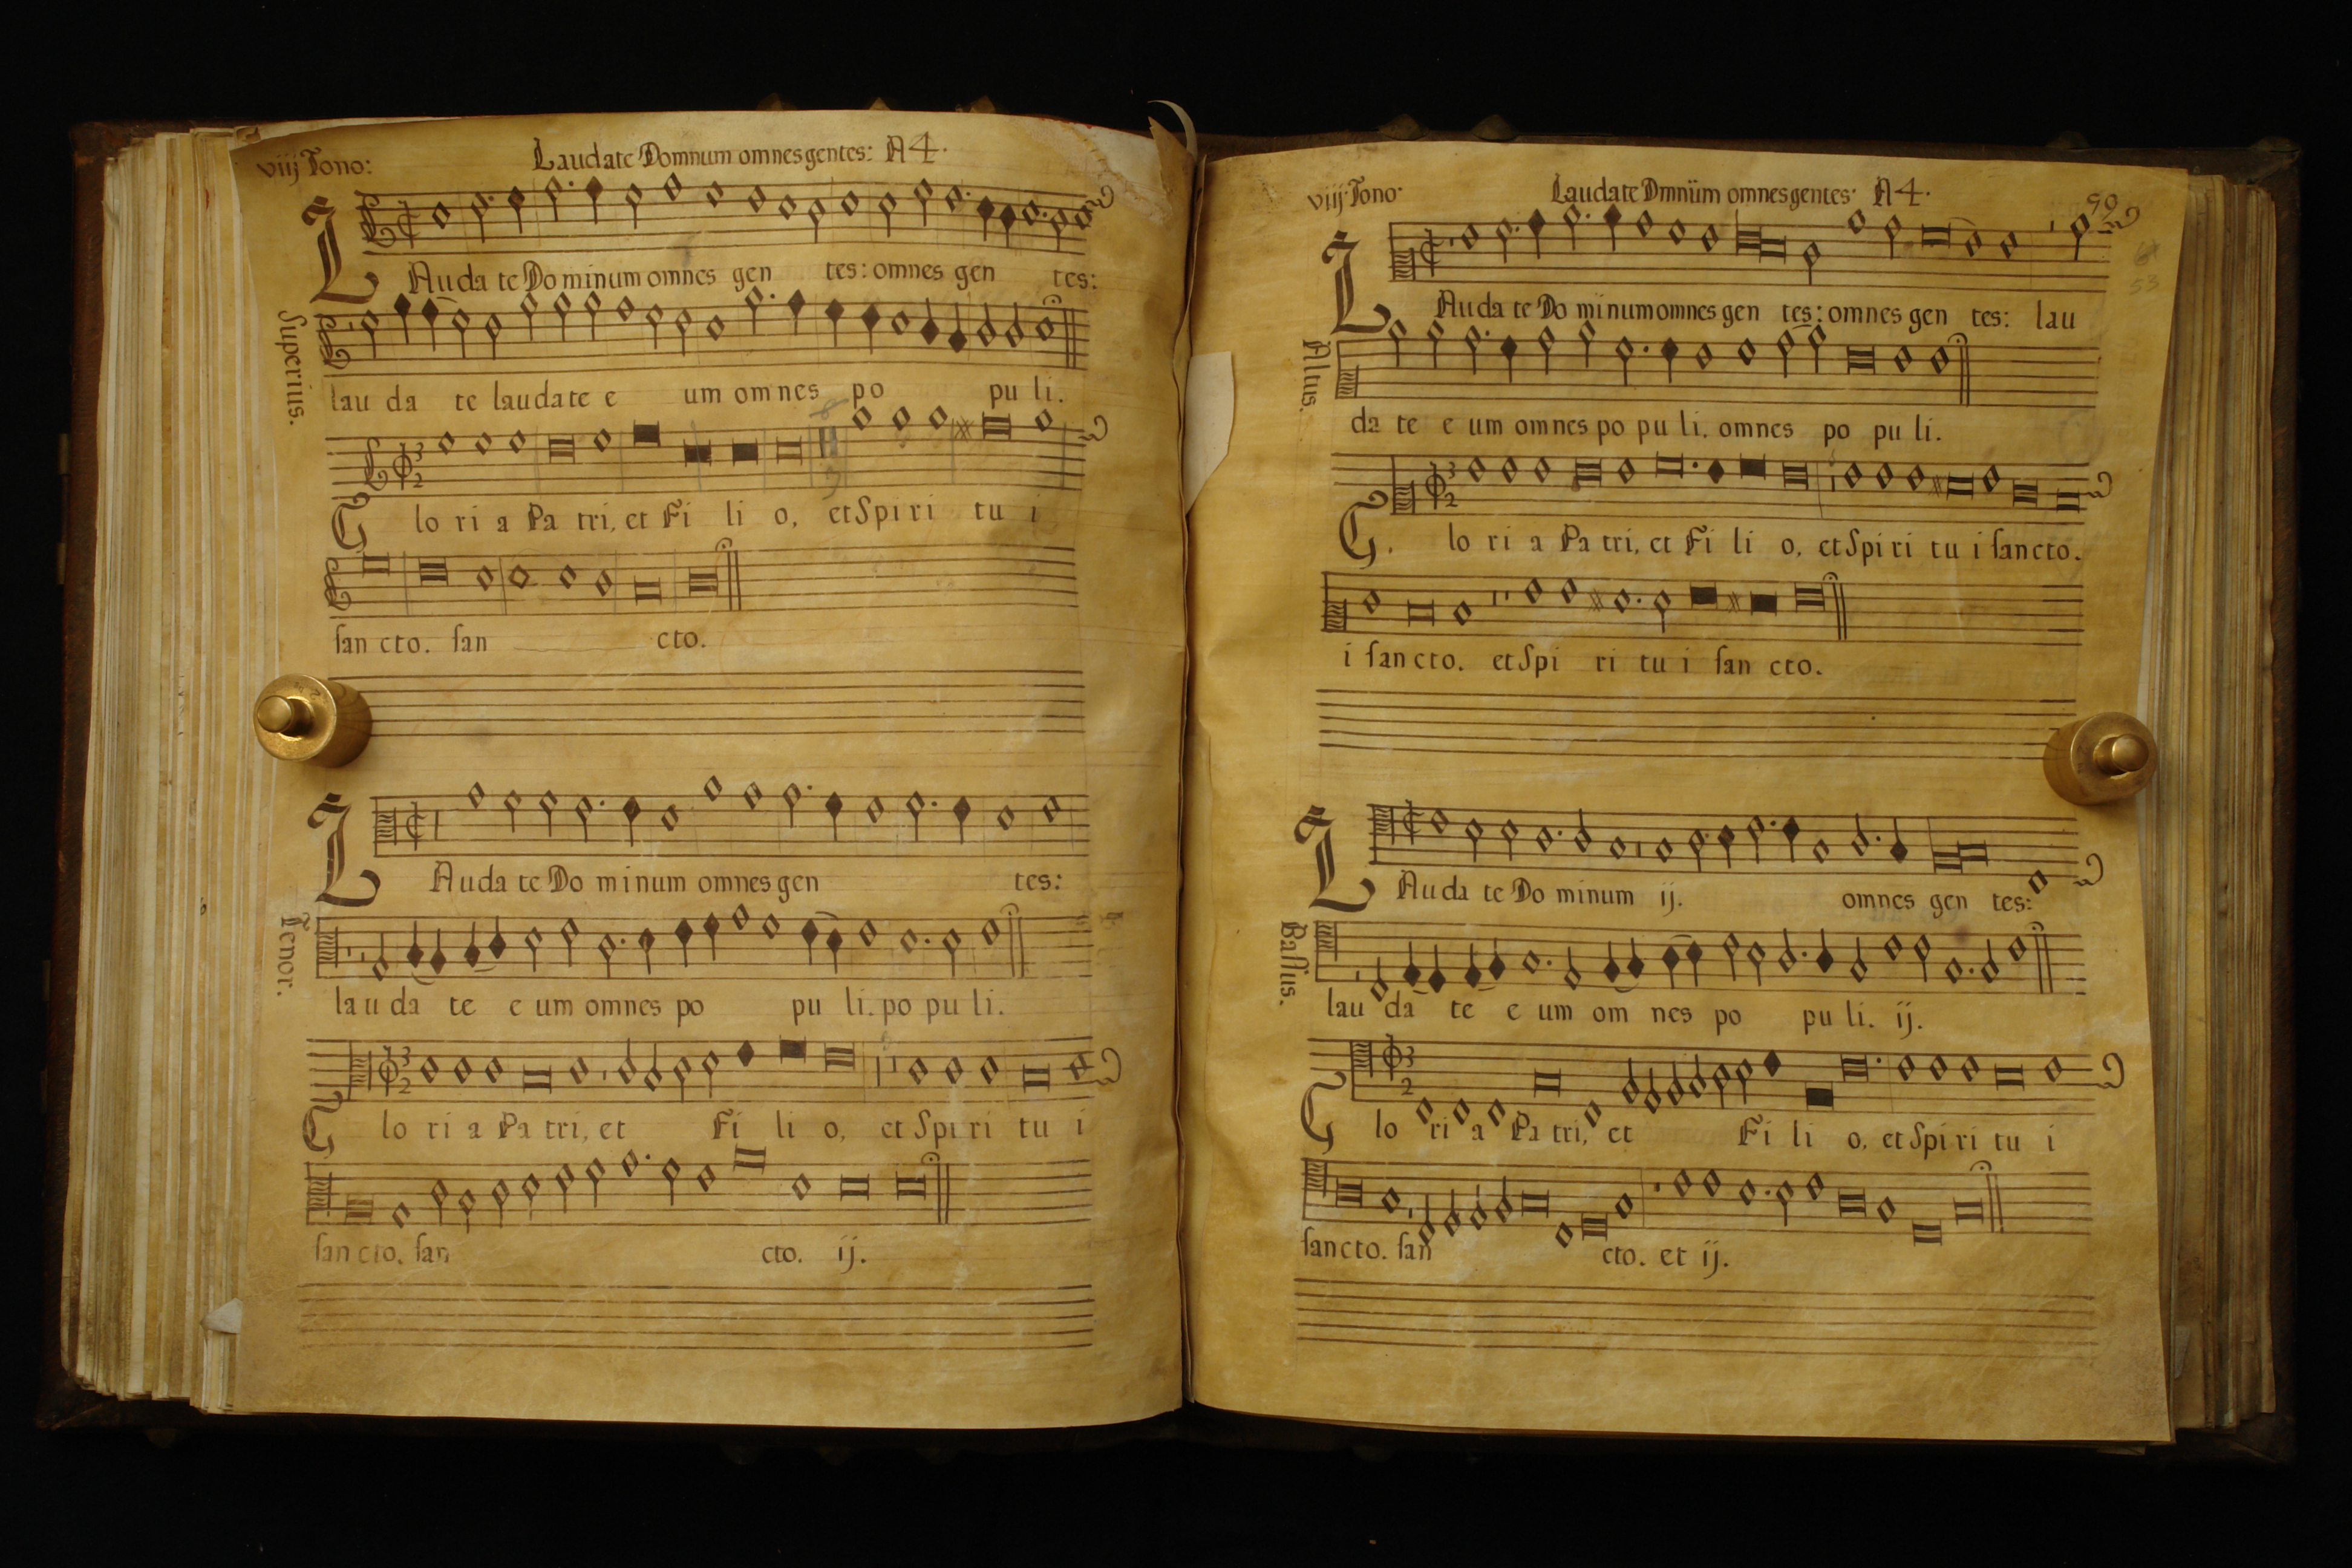 viij Tono:
Laudate Domnum omnes gentes: A 4.
LAuda te Do minum omnes gen tes: omnes gen tes:
Superius.
lau da te laudate e um omnes po pu li.
3
2
G lo ri a Pa tri, et Fi li o, et Spi ri tu i
san cto. san cto.
LAuda te Do minum omnes gen tes:
Tenor.
lau da te e um omnes po pu li. po pu li.
3
2
G lo ri a Pa tri, et Fi li o, et Spi ri tu i
san cto. san cto. ij.
viij Tono
Laudate Dmnüm omnes gentes· A 4.
90
53
LAuda te Do minum omnes gen tes: omnes gen tes: lau
Altus.
da te e um omnes po pu li. omnes po pu li.
3
2
G. lo ri a Pa tri, et Fi li o, et Spi ri tu i sancto.
i san cto. et Spi ri tu i san cto.
LAuda te Do minum ij. omnes gen tes:
Bassus.
lau da te e um om nes po pu li. ij.
3
2
G lo ri a Pa tri, et Fi li o, et Spi ri tu i
sancto. san cto. et ij.